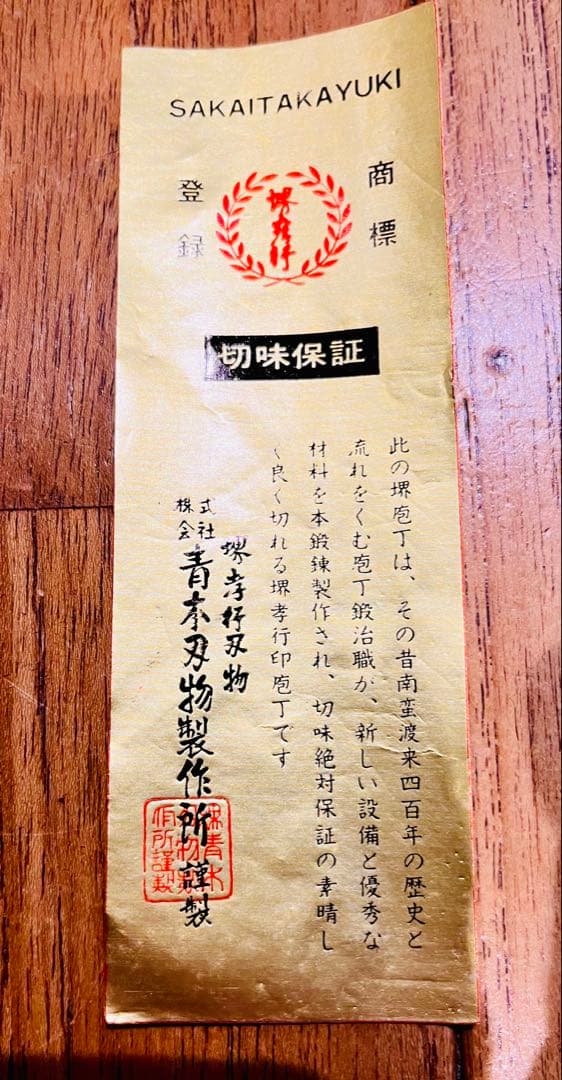 SAKAITAKAYUKI
商標
堺孝行
登録
切味保証
此の堺庖丁は、その昔南蛮渡来四百年の歴史と
流れをくむ庖丁鍛冶職が、新しい設備と優秀な
材料を本鍛錬製作され、切味絶対保証の素晴し
く良く切れる堺孝行印庖丁です
堺孝行刃物
株式会社
青木刃物製作所謹製